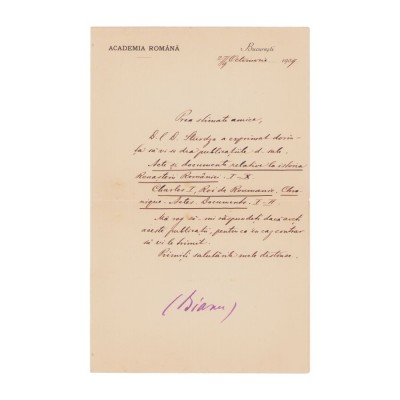 ACADEMIA ROMÂNĂ
București
Octomvrie 1909
Prea stimate amice,
D-l D. Sturdza a exprimat dorin-
ța să vi se dea publicațiile d-sale
Acte și documente relative la istoria
Renascerei României I-IX
Charles I, Roi de Roumanie, Chro-
nique - Actes. Documents I-II.
Vă rog să-mi răspundeți dacă aveți
aceste publicații, pentru ca în caz contrar
să vi le trimit.
Primiți salutările mele distinse.
(Bianu)